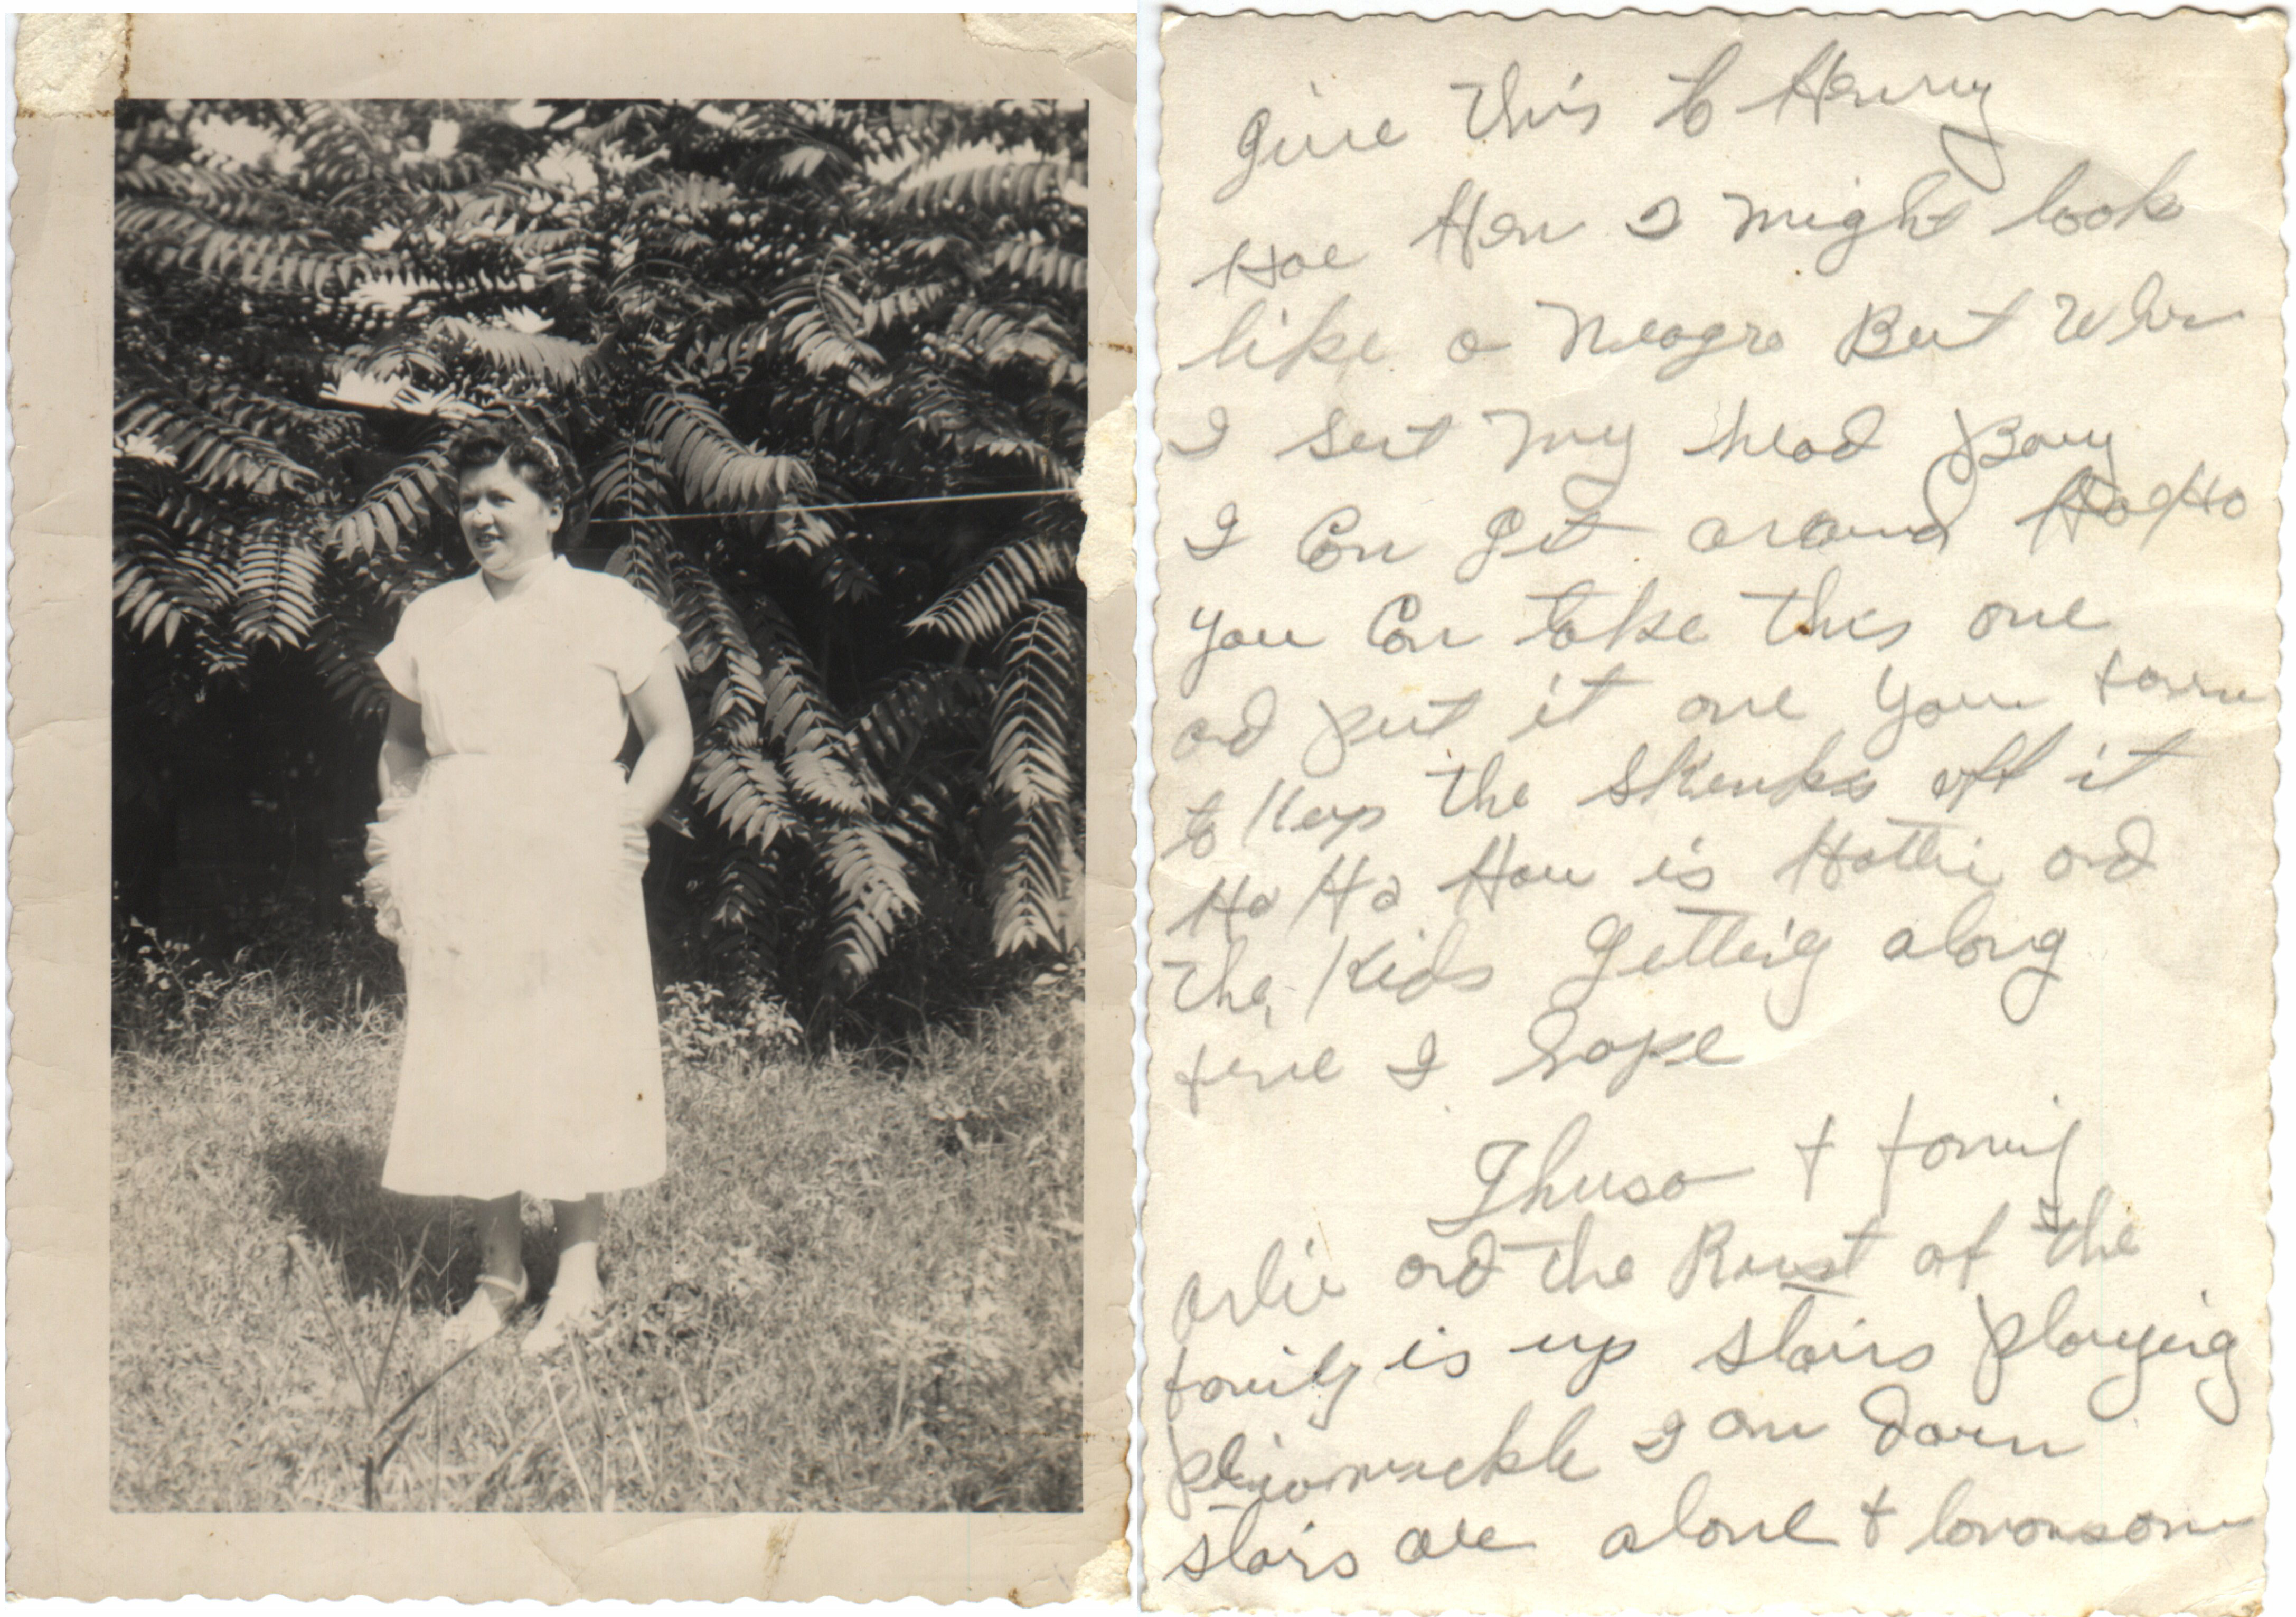 Give this to Henry
Hoe Hen I might look
like a Neagro But when
I set my head Bouy
I Can get around Hoe Ho
you Can take this one
and put it one your
to Keep the Skunks off it
Ha Ha How is Hattie and
the Kids getting along
I hope
Thusa + famiy
Arlie and the Rust of the
family is up stairs playing
I am down
stairs ale alone +